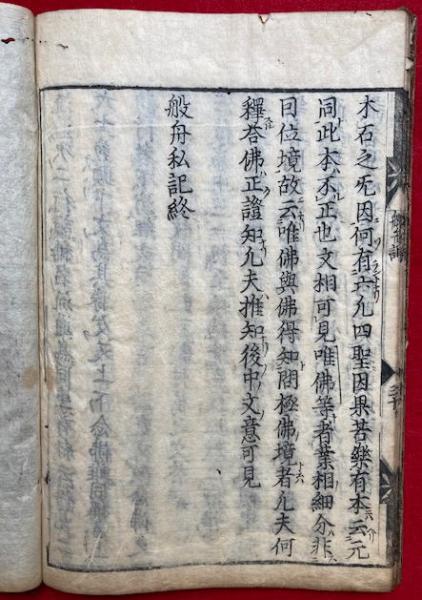 木石之死因何有六九四聖因果苦樂有本云元
同此本不正也文相可見唯佛等者業相細分非
因位境故云唯佛與佛得知問極佛境者凡夫何
釋答佛正證知凡夫推知後中文意可見
般舟私記終